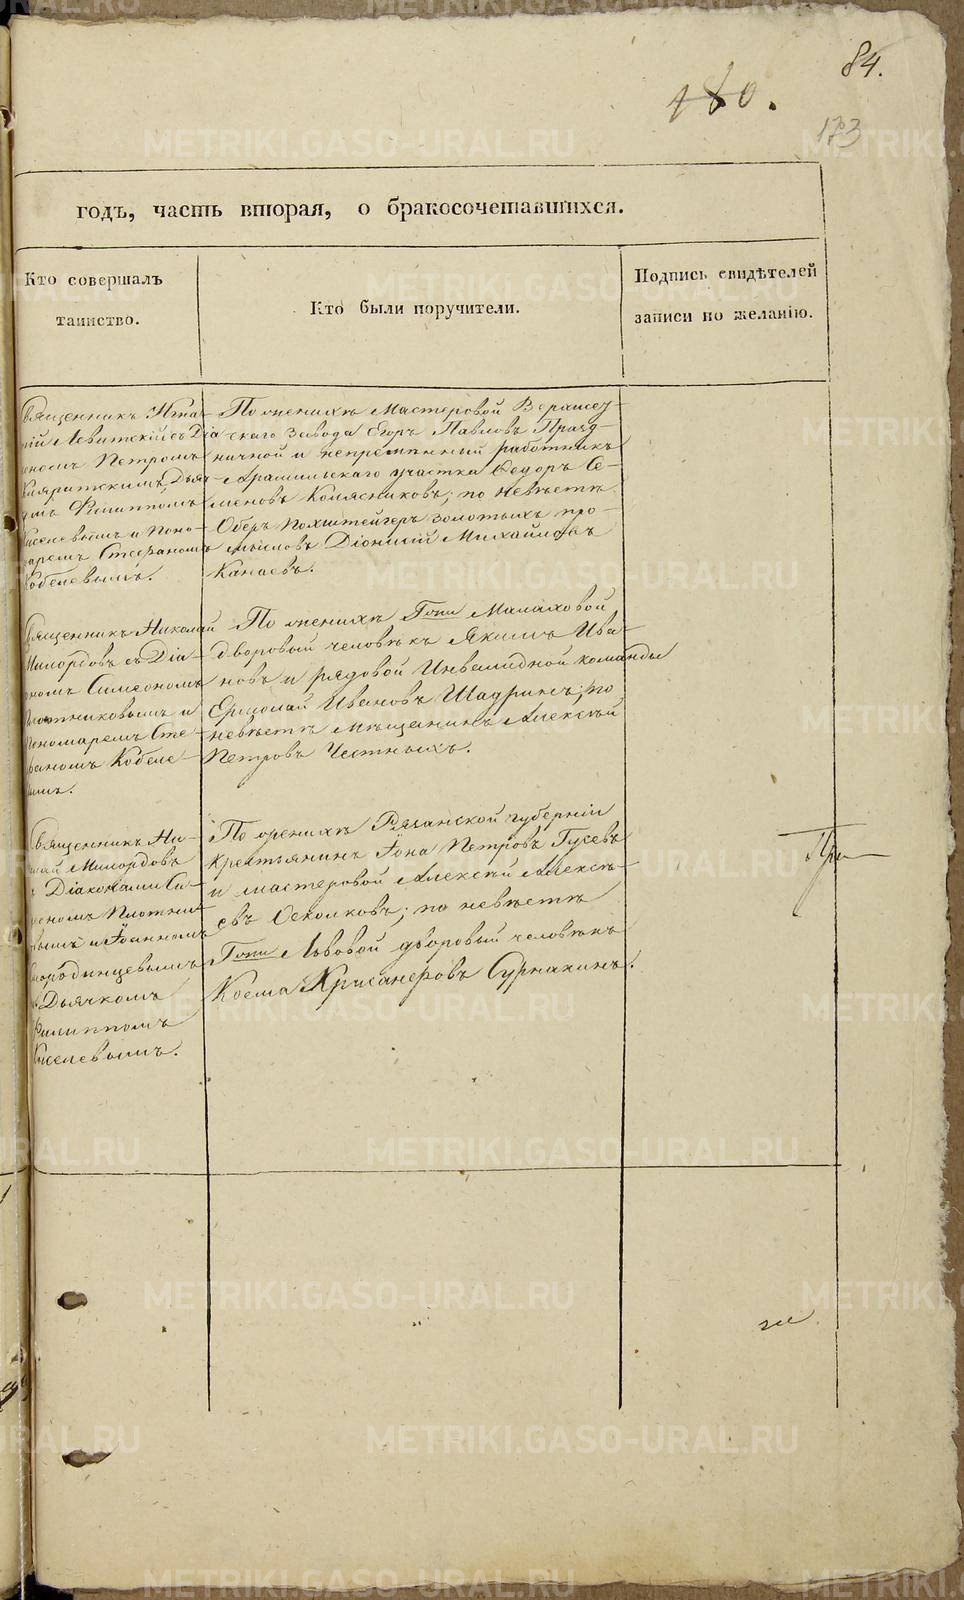 84.
180.
173
годъ, часть вторая, о бракосочетавшихся.
Кто совершалъ
таинство.
Кто были поручители.
Подпись свидѣтелей
записи по желанію.
Священникъ Игна-
тій Левитскій съ Діа
кономъ Петромъ
Дьяч-
комъ Филиппомъ
Киселевымъ и Поно-
маремъ Стефаномъ
Кобелевымъ.
По женихѣ Мастеровой Верхисет-
скаго Завода Егоръ Павловъ Празд-
ничной и непремѣнный работникъ
Арамильскаго участка Ѳедоръ Се-
меновъ Колясниковъ; по невѣстѣ
Оберъ Похштейгеръ золотыхъ про-
мысловъ Діонисій Михайловъ
Канаевъ.
Священникъ Николай
Милордовъ съ Діа-
кономъ Симеономъ
Плотниковымъ и
Пономаремъ Сте-
фаномъ Кобеле-
вымъ.
По женихѣ Гпжи Малаховой
дворовой человѣкъ Якимъ Ива-
новъ и рядовой Инвалидной команды
Ермолай Ивановъ Шадринъ; по
невѣстѣ Мѣщанинъ Алексѣй
Петровъ Честныхъ.
Священникъ Ни-
колай Милордовъ
съ Діаконами Си-
меономъ Плотни-
ковымъ и Іоанномъ
Смородинцевымъ
и Дьячкомъ
Филиппомъ
Киселевымъ.
По женихѣ Рязанской губерніи
крестьянинъ Іона Петровъ Гусевъ
и мастеровой Алексѣй Алексѣ-
евъ Осколковъ; по невѣстѣ
Гпжи Львовой дворовый человѣкъ
Косма Хрисанфовъ Сурнакинъ.
METRIKI.GASO-URAL.RU